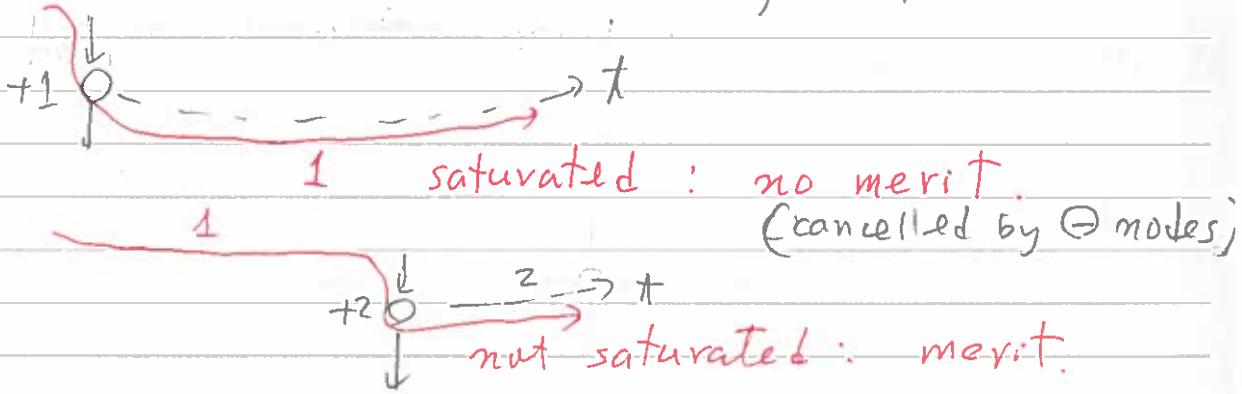 +1 t
1 saturated : no merit.
1 (cancelled by ⊖ nodes)
+2 2 t
not saturated : merit.